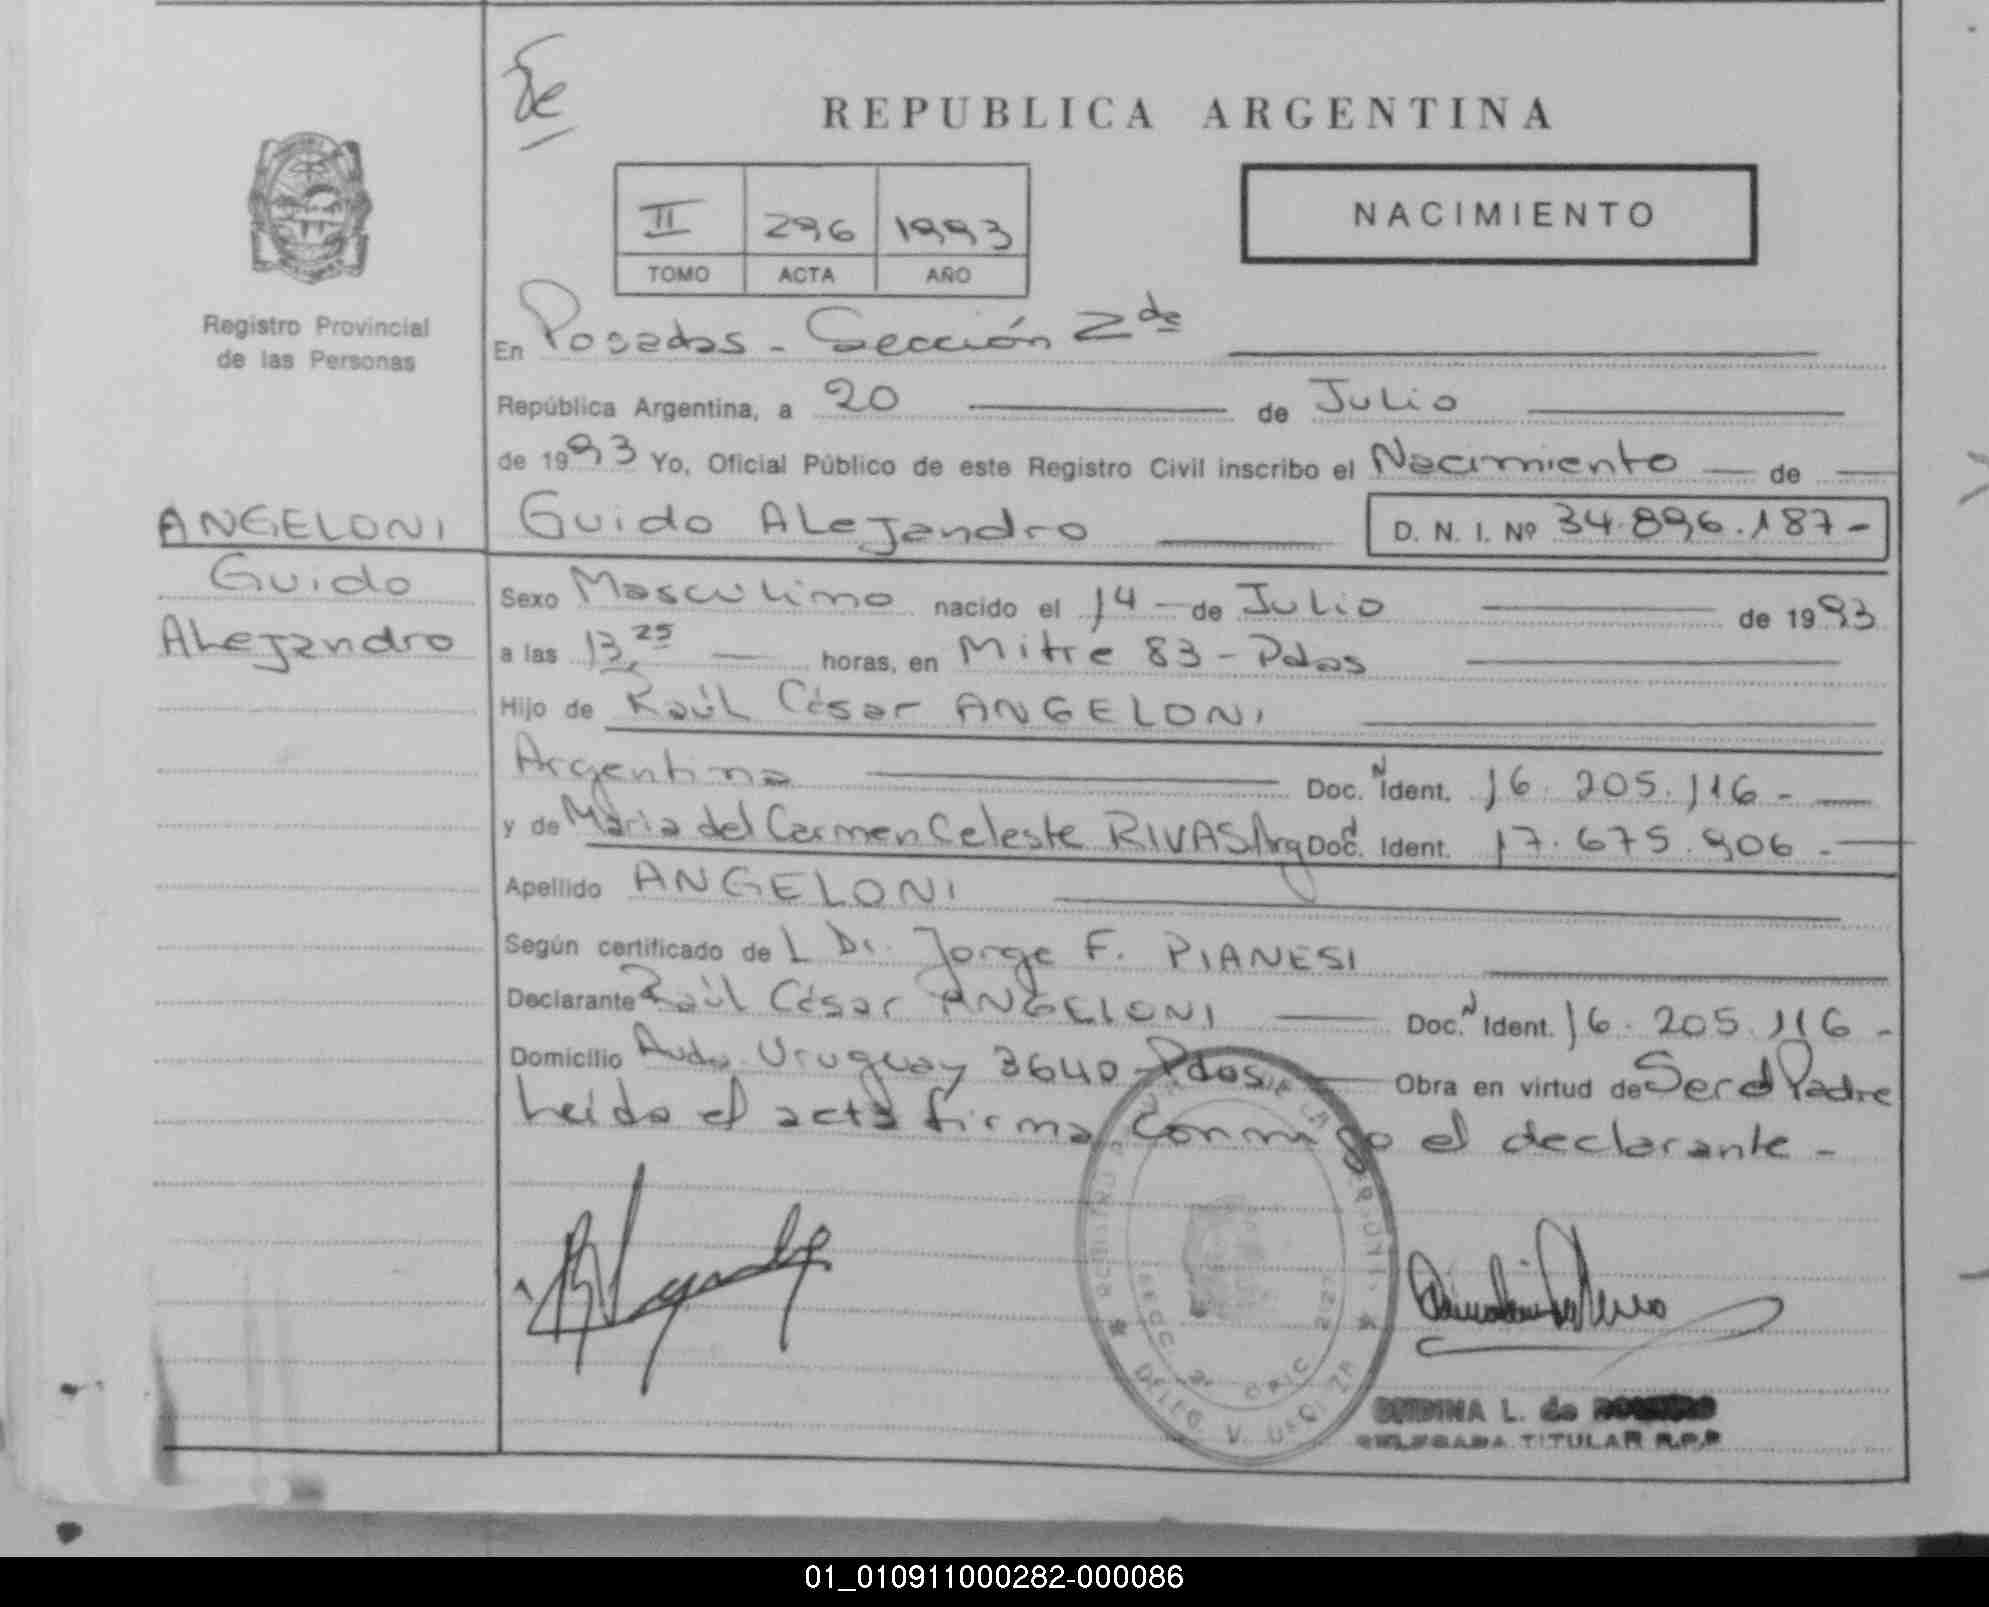 De
REPUBLICA ARGENTINA
II 296 1993
TOMO ACTA AÑO
NACIMIENTO
Registro Provincial
de las Personas
En Posadas - Sección 2da
República Argentina, a 20 de Julio
de 1993 Yo, Oficial Público de este Registro Civil inscribo el Nacimiento de
ANGELONI
Guido
Alejandro
Guido Alejandro D. N. I. Nº 34.896.187-
Sexo Masculino nacido el 14 - de Julio de 1993
a las 13,25 horas, en Mitre 83 - Pdas
Hijo de Raúl César ANGELONI
Argentina Doc. N Ident. 16.205.116 -
y de María del Carmen Celeste RIVAS Arg Doc. Ident. 17.675.906 -
Apellido ANGELONI
Según certificado de L Dr. Jorge F. PIANESI
Declarante Raúl César ANGELONI Doc. N Ident. 16.205.116 -
Domicilio Avda. Uruguay 3640 - Pdas Obra en virtud de Ser el Padre
Leída el acta firma conmigo el declarante -
L. de
TITULAR R.P.P
01_010911000282-000086